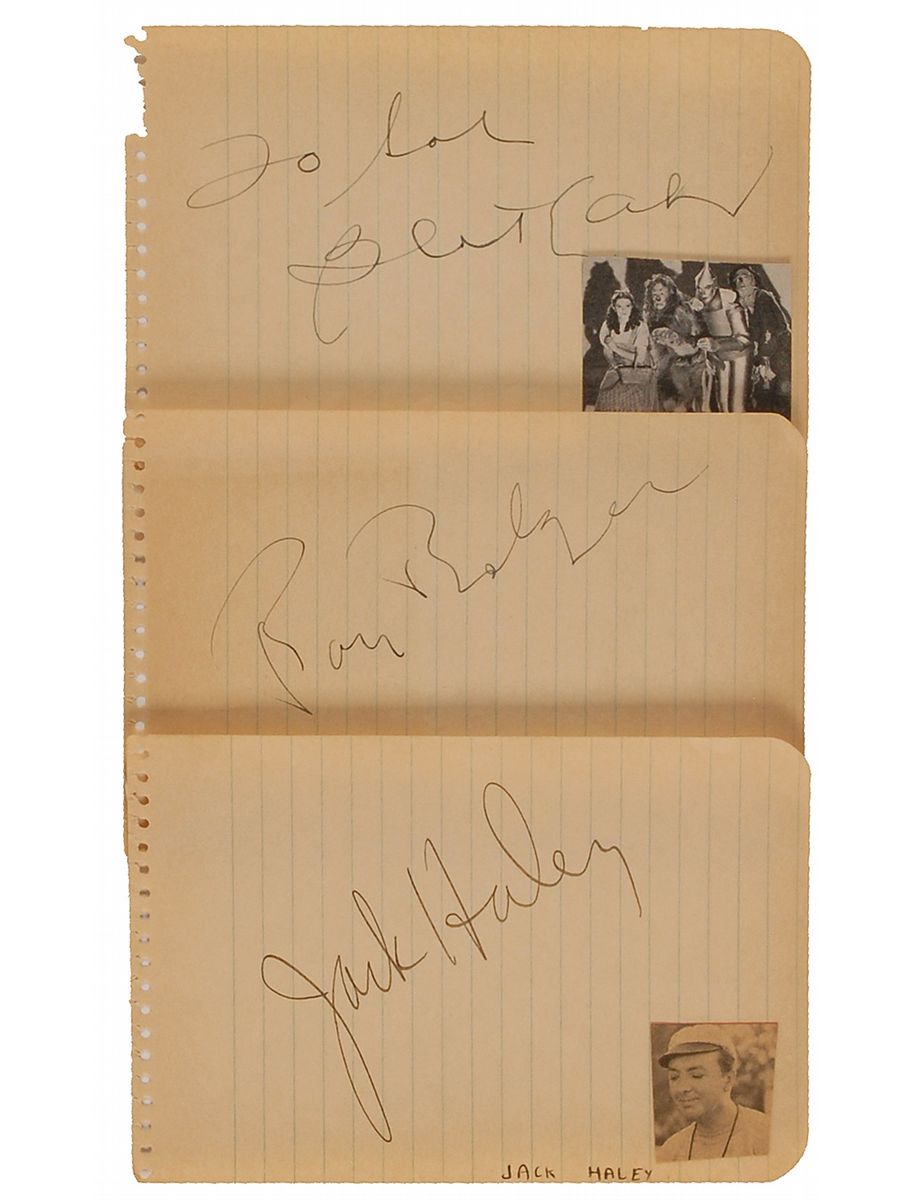 To Sol
Bert Lahr
Ray Bolger
Jack Haley
JACK HALEY